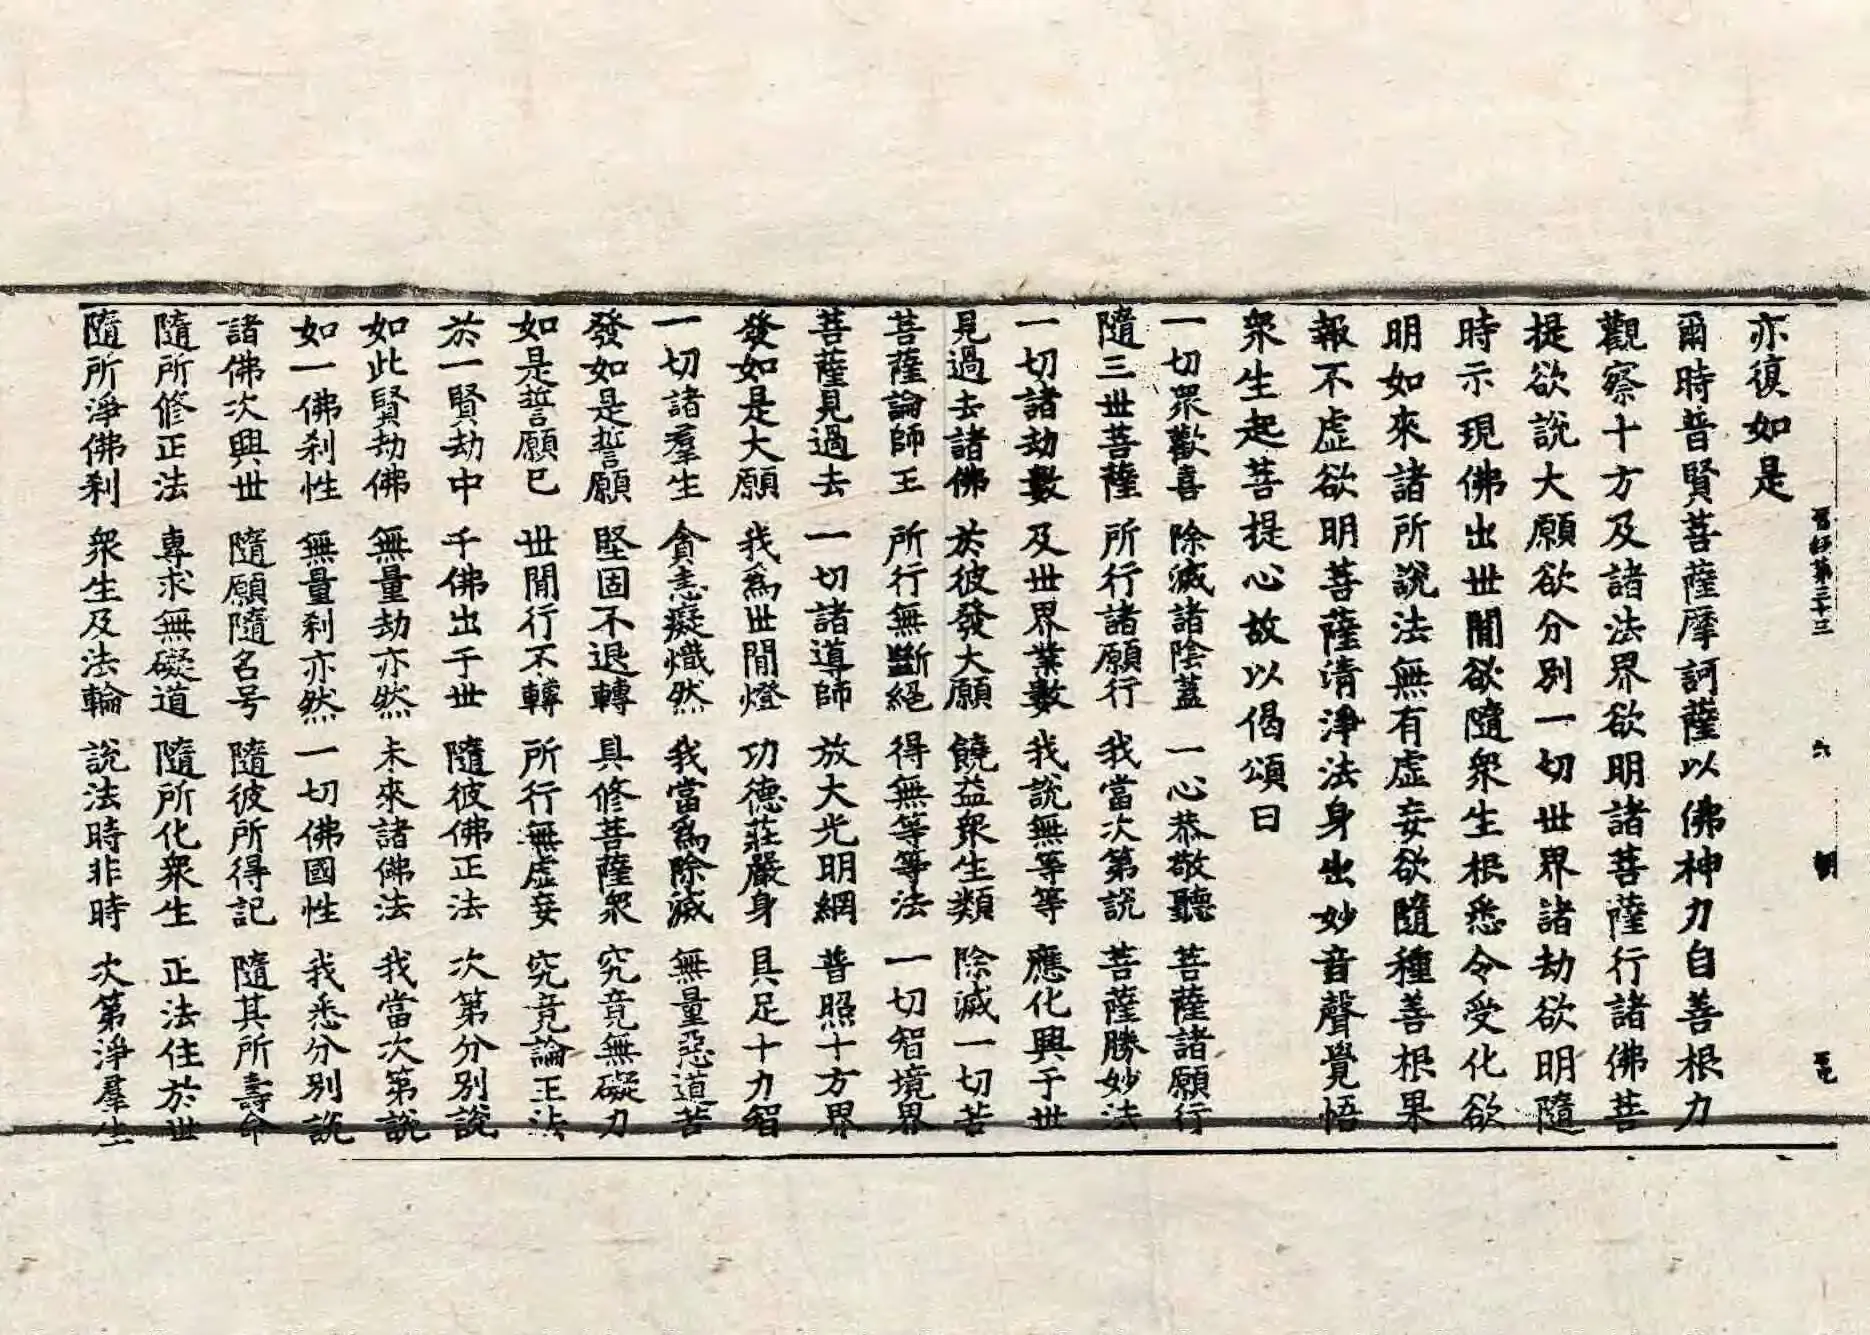 亦復如是
爾時普賢菩薩摩訶薩以佛神力自善根力
觀察十方及諸法界欲明諸菩薩行諸佛菩
提欲說大願欲分別一切世界諸劫欲明隨
時示現佛出世閒欲隨衆生根悉令受化欲
明如來諸所說法無有虛妄欲隨種善根果
報不虛欲明菩薩清淨法身出妙音聲覺悟
衆生起菩提心故以偈頌曰
一切衆歡喜 除滅諸陰蓋 一心恭敬聽 菩薩諸願行
隨三世菩薩 所行諸願行 我當次第說 菩薩勝妙法
一切諸劫數 及世界業數 我說無等等 應化興于世
見過去諸佛 於彼發大願 饒益衆生類 除滅一切苦
菩薩論師王 所行無斷絕 得無等等法 一切智境界
菩薩見過去 一切諸導師 放大光明網 普照十方界
發如是大願 我爲世閒燈 功德莊嚴身 具足十力智
一切諸羣生 貪恚癡熾然 我當爲除滅 無量惡道苦
發如是誓願 堅固不退轉 具修菩薩衆 究竟無礙力
如是誓願已 世閒行不轉 所行無虛妄 究竟論正法
於一賢劫中 千佛出于世 隨彼佛正法 次第分別說
如此賢劫佛 無量劫亦然 未來諸佛法 我當次第說
如一佛刹性 無量刹亦然 一切佛國性 我悉分別說
諸佛次興世 隨願隨名号 隨彼所得記 隨其所壽命
隨所修正法 專求無礙道 隨所化衆生 正法住於世
隨所淨佛刹 衆生及法輪 說法時非時 次第淨羣生